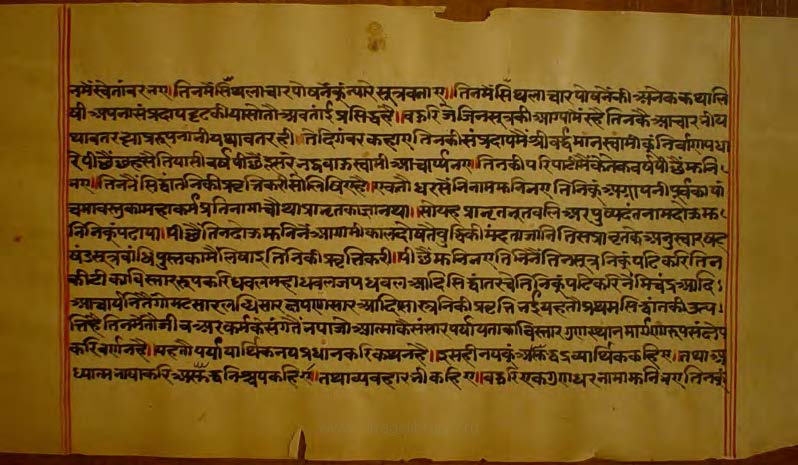 नमैं स्वेतांबर नए॥ तिनमैं सिथलाचार पोषनेंकूं न्यारे सूत्र बनाए॥ तिनमें सिथलाचार पोषनेंकी अनेक कथा लि
षी अपना संप्रदाय दृढ कीया सो तौ अबतांई प्रसिद्ध है॥ बहुरि जे जिनसूत्रकी आग्यामैं रहै तिनकै आचार नी य
थावत रह्या प्ररूपना नी यथावत रही॥ ते दिगंबर कहाए तिनकी संप्रदायमैं श्री वर्द्धमान स्वामीकूं निर्वाण पधा
रे पीछैं छहसै तियासी वर्ष पीछैं दूसरे नद्रबाहु स्वामी आचार्य नए॥ तिनकी परिपाटीमैं केतेक वर्ष पीछैं मुनि
नए॥ तिननैं सिद्धांतनिकी प्रवृत्ति करी सो लिषिए है॥ एक तौ धरसेन नामा मुनि नए तिनिकूं अग्रायनी पूर्वका पां
चमा वस्तुका महाकर्मप्रकृति नामा चौथा प्रानृतका ज्ञान था॥ सो यह प्रानृत नूतबलि अर पुष्पदंत नामा दोऊ मु
निनिकूं पढाया॥ पीछैं तिन दोऊ मुनिनैं आगामी कालदोषतैं बुद्धिकी मंदता जांनि तिस प्रानृतकै अनुस्वार षट्
षंडसूत्र बांधि पुस्तकामैं लिषाइ तिनिकी प्रवृत्ति करी॥ पीछैं मुनि नए तिनिनैं तिन सूत्रनिकूं पढि करि तिन
की टीका विस्ताररूप करि धवल महाधवल जयधवल आदि सिद्धांत रचे तिनिकूं पढि करि नेमिचंद्र आदि
आचार्यनितैं गोमटसार लब्धिसार क्षपणासार आदि सास्त्रनिकी प्रवृत्ति नई यह तौ प्रथम सिद्धांतकी उत्प
त्ति है तिनमैं तौ जीव अर कर्मकै संगतैं नयाजो आत्माकै संसारपर्याय ताका विस्तार गुणस्थान मार्गणारूप संक्षेप
करि वर्णन है॥ यह तौ पर्यायार्थिकनय प्रधानकरि कथन है॥ इसही नयकूं अशुद्धद्रव्यार्थिक कहिए॥ तथा अ
ध्यात्मनाषाकरि अशुद्धनिश्चय कहिए॥ तथा व्यवहार नी कहिए॥ बहुरि एक गुणधर नामा मुनि नए तिनकूं